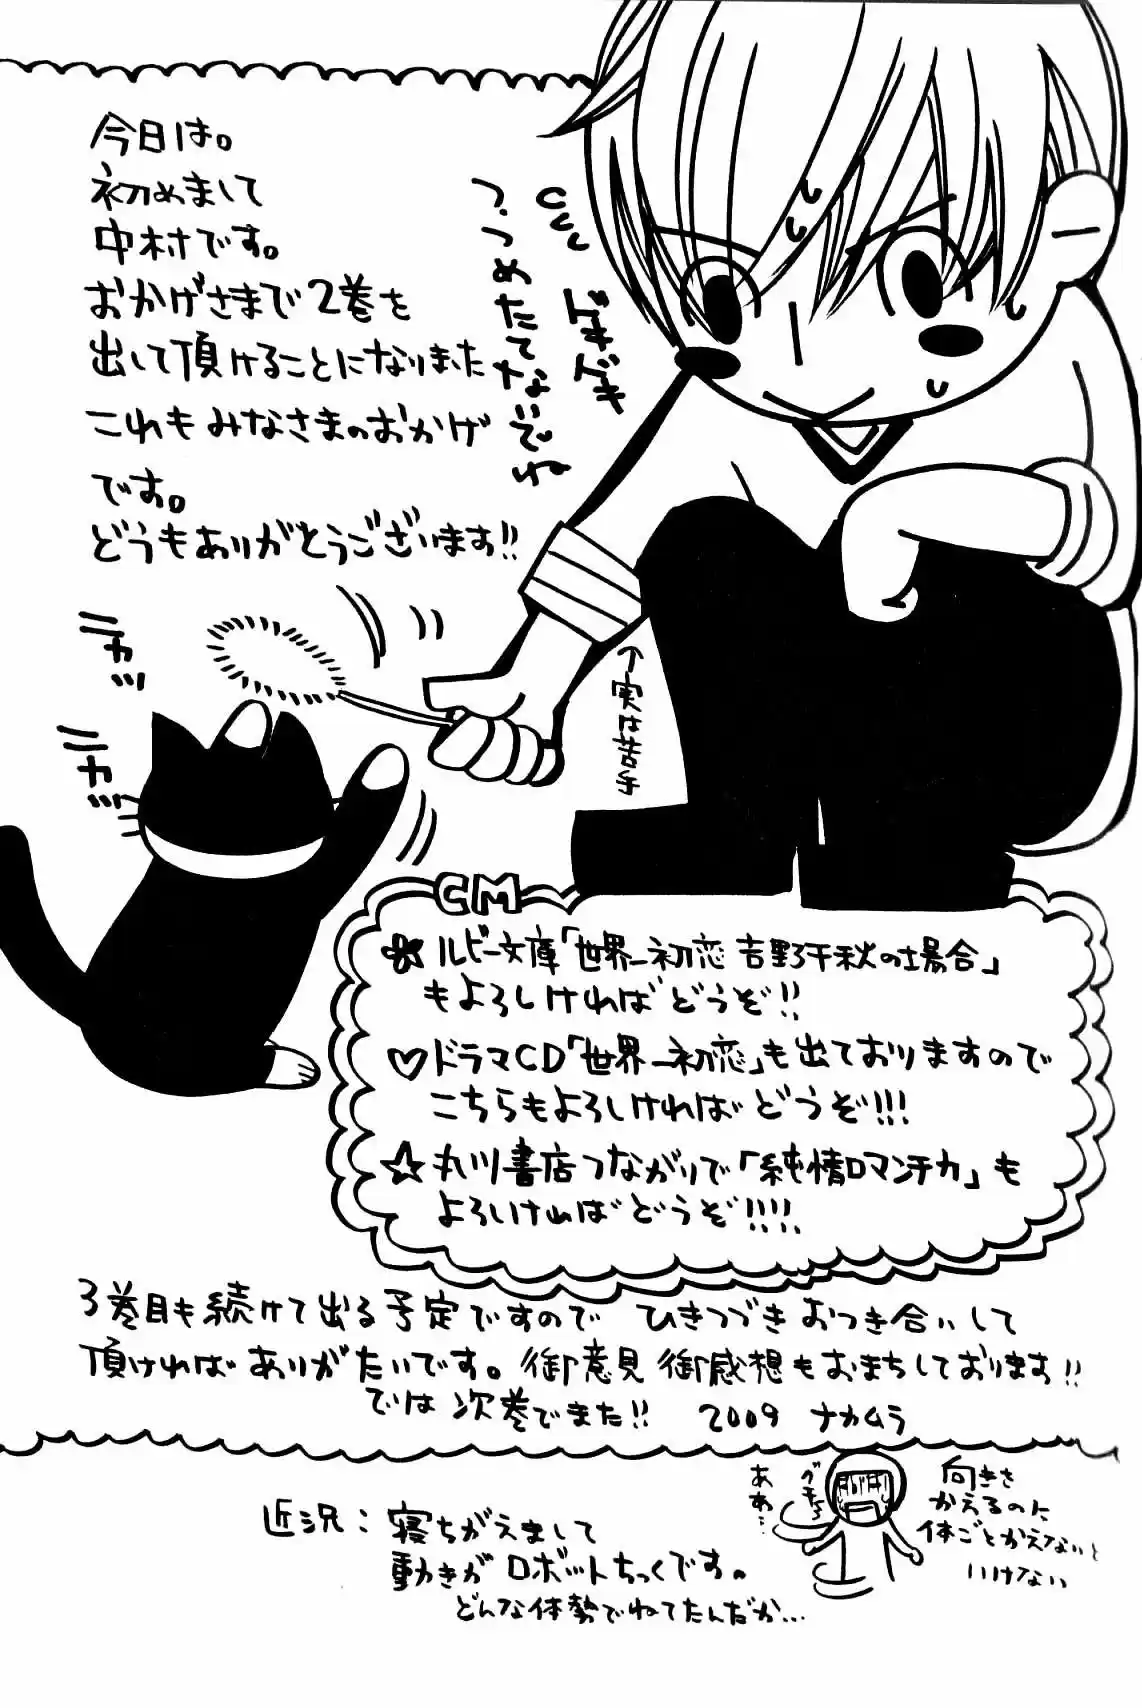 今日は。
初めまして
中村です。
おかげさまで2巻を
出して頂けることになりました
これもみなさまのおかげ
です。
どうもありがとうございます!!
つ、つめたてないでね
ドキドキ
ニャカッ
ニャカッ
↑実は苦手
CM
ルビー文庫「世界一初恋 吉野千秋の場合」
もよろしければどうぞ!!
♡ドラマCD「世界一初恋」も出ておりますので
こちらもよろしければどうぞ!!!
☆丸川書店つながりで「純情ロマンチカ」も
よろしければどうぞ!!!!
3巻目も続けて出る予定ですので ひきつづきおつき合いして
頂ければありがたいです。御意見 御感想もおまちしております!!
では次巻でまた!! 2009 ナカムラ
近況:寝ちがえまして
動きがロボットちっくです。
どんな体勢でねてたんだか…
ああ…
向きを
かえるのに
体ごとかえないと
いけない